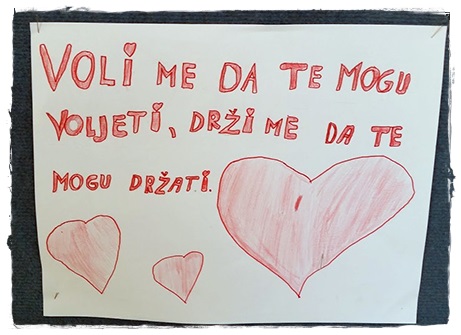 VOLI ME DA TE MOGU
VOLJETI, DRŽI ME DA TE
MOGU DRŽATI.